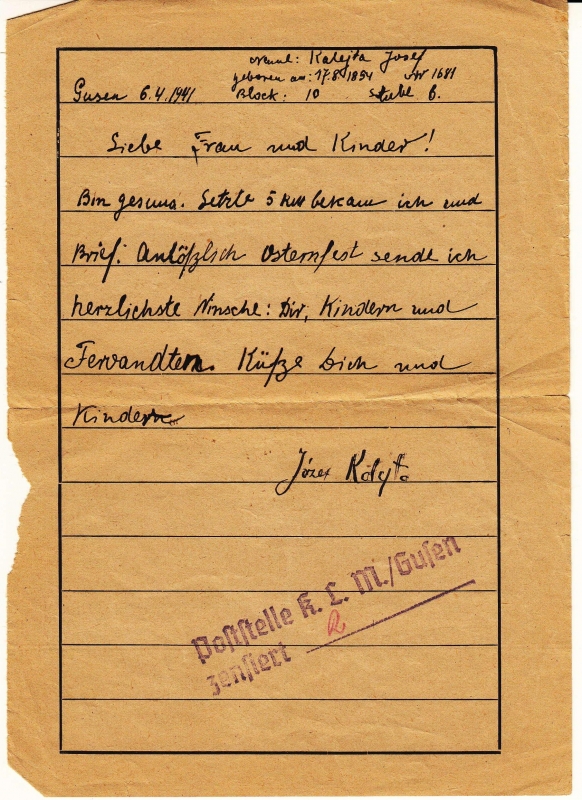 Name: Kalejta Josef
geboren am: 17.8.1894 Nr 1681
Gusen 6.4.1941 Block: 10 Stube 6.
Liebe Frau und Kinder!
Bin gesund. Letzte 5 RM bekam ich und
Brief. Anlößlich Osternfest sende ich
herzlichste Winsche: Dir, Kindern und
Fervandten. Küße Dich und
Kindern
Józef
Poststelle K. L. M./Gusen
zensiert